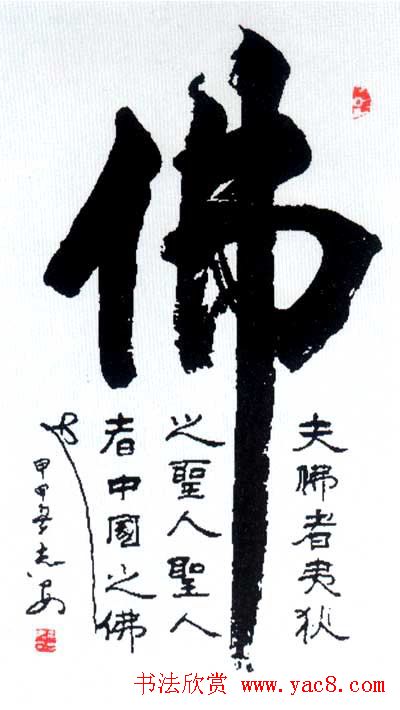 佛
夫佛者夷狄
之聖人聖人
者中國之佛
也
甲申冬
书法欣赏 www.yac8.com